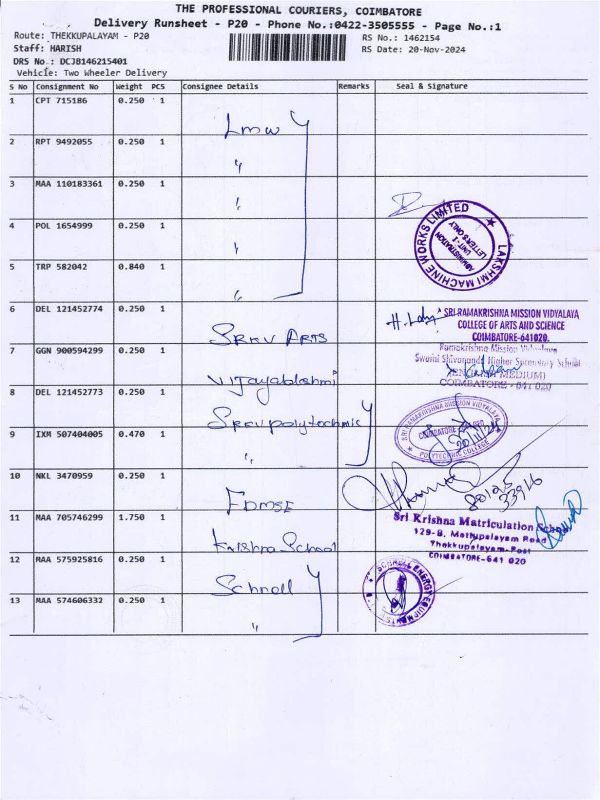 THE PROFESSIONAL COURIERS, COIMBATORE
Delivery Runsheet - P20 - Phone No.:0422-3505555 - Page No.:1
Route: THEKKUPALAYAM - P20
RS No.: 1462154
Staff: HARISH
RS Date: 20-Nov-2024
DRS No.: DCJB146215401
Vehicle: Two Wheeler Delivery
S No Consignment No Weight PCS Consignee Details Remarks Seal & Signature
1 CPT 715186 0.250 1 Lmw
2 RPT 9492055 0.250 1 "
3 MAA 110183361 0.250 1 "
4 POL 1654999 0.250 1 "
LAKSHMI MACHINE WORKS LIMITED
ADMINISTRATION
UNIT-I
LETTERS ONLY
5 TRP 582042 0.840 1 "
6 DEL 121452774 0.250 1 SRKV ARTS
SRI RAMAKRISHNA MISSION VIDYALAYA
COLLEGE OF ARTS AND SCIENCE
COIMBATORE-641020.
7 GGN 900594299 0.250 1 Vijayalakshmi
Ramakrishna Mission Vidyalaya
Swami Shivananda Higher Secondary School
COIMBATORE - 641 020
8 DEL 121452773 0.250 1 SRKV polytechnic
SRI RAMAKRISHNA MISSION VIDYALAYA
POLYTECHNIC COLLEGE
9 IXM 507404005 0.470 1 "
10 NKL 3470959 0.250 1
11 MAA 705746299 1.750 1 Krishna School
Sri Krishna Matriculation School
129-B, Mathupalayam Road
Thekkupalayam-Post
COIMBATORE-641 020
12 MAA 575925816 0.250 1 Schnell
SCHNELL ENERGY EQUIPMENTS
13 MAA 574606332 0.250 1 "